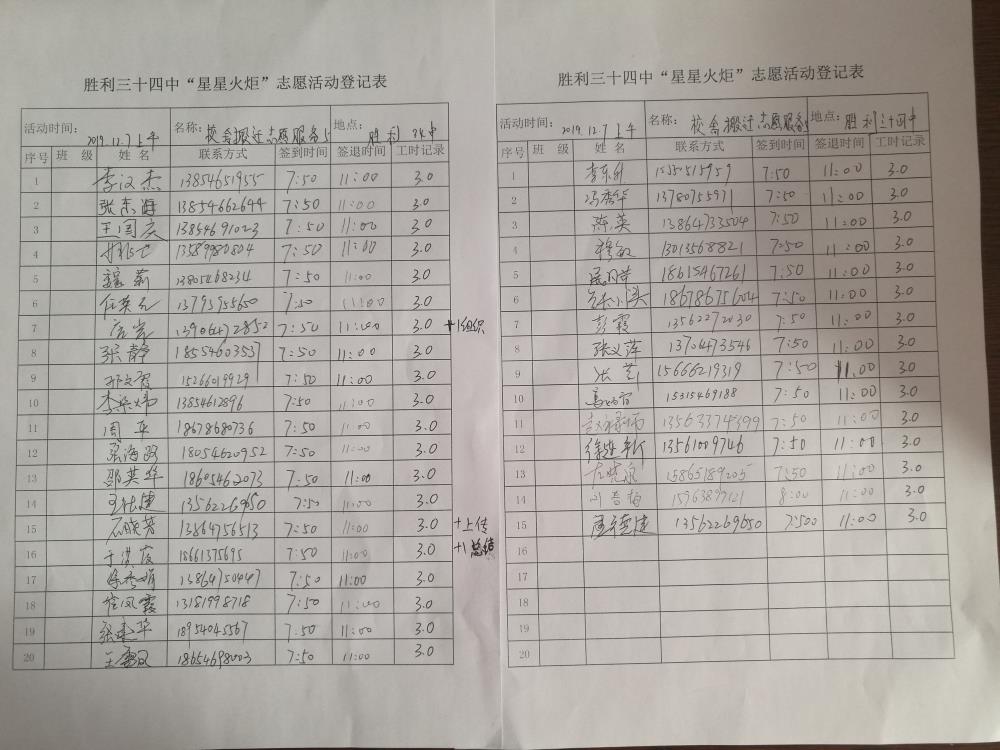 胜利三十四中“星星火炬”志愿活动登记表
活动时间: 2019.12.7上午 名称: 校舍搬迁志愿服务 地点: 胜利34中
序号 班 级 姓 名 联系方式 签到时间 签退时间 工时记录
1 李汉杰 13854651955 7:50 11:00 3.0
2 张东海 13854662644 7:50 11:00 3.0
3 王国庆 13854691023 7:50 11:00 3.0
4 13589980804 7:50 11:00 3.0
5 13805468234 7:50 11:00 3.0
6 任英元 7:50 11:00 3.0
7 13906472852 7:50 11:00 3.0 +1组织
8 张静 18554603557 7:50 11:00 3.0
9 15266019929 7:50 11:00 3.0
10 李梁炜 13854612896 7:50 11:00 3.0
11 周平 18678680736 7:50 11:00 3.0
12 18054620952 7:50 11:00 3.0
13 邵英华 18605462073 7:50 11:00 3.0
14 13562269650 7:50 11:00 3.0
15 石晓芳 13864756513 7:50 11:00 3.0 +上传
16 于洪霞 18661375695 7:50 11:00 3.0 +1总结
17 徐秀娟 7:50 11:00 3.0
18 崔凤霞 13181998718 7:50 11:00 3.0
19 张建华 18954045567 7:50 11:00 3.0
20 18654698003 7:50 11:00 3.0
胜利三十四中“星星火炬”志愿活动登记表
活动时间: 2019.12.7上午 名称: 校舍搬迁志愿服务 地点: 胜利三十四中
序号 班 级 姓 名 联系方式 签到时间 签退时间 工时记录
1 李东升 7:50 11:00 3.0
2 冯秀华 13780755971 7:50 11:00 3.0
3 陈英 13864733504 7:50 11:00 3.0
4 穆敏 13013568821 7:50 11:00 3.0
5 18615467261 7:50 11:00 3.0
6 18678675604 7:50 11:00 3.0
7 彭霞 13562272030 7:50 11:00 3.0
8 张义萍 13704673546 7:50 11:00 3.0
9 15666219319 7:50 11:00 3.0
10 15315469188 7:50 11:00 3.0
11 13563774399 7:50 11:00 3.0
12 徐延新 13561009746 7:50 11:00 3.0
13 15865189205 7:50 11:00 3.0
14 15963897121 8:00 11:00 3.0
15 13562269650 7:500 11:00 3.0
16
17
18
19
20